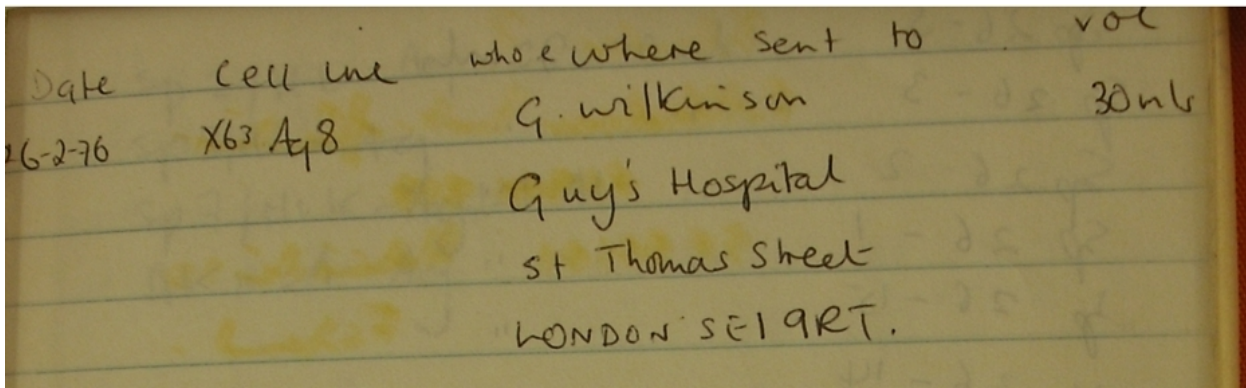 Date Cell line who & where sent to vol
26-2-76 X63 Ag 8 G. Wilkinson 30mls
Guy's Hospital
St Thomas Street
LONDON SE1 9RT.